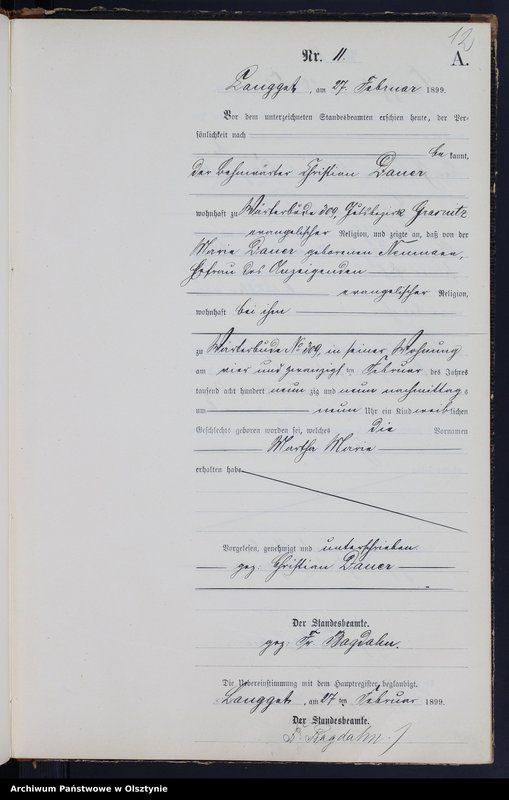 12
A.
Nr. 11.
Langgut, am 27. Februar 1899.
Vor dem unterzeichneten Standesbeamten erschien heute, der Per-
sönlichkeit nach
be kannt,
der Bahnwärter Christian Dauer
wohnhaft zu Wärterbude 309, Gutsbezirk Grasnitz
evangelischer Religion, und zeigte an, daß von der
Marie Dauer geborenen Neumann,
Ehefrau des Anzeigenden
evangelischer Religion,
wohnhaft bei ihm
zu Wärterbude No 309, in seiner Wohnung
am vier und zwanzigsten Februar des Jahres
tausend acht hundert neun zig und neun nachmittags
um neun Uhr ein Kind weiblichen
Geschlechts geboren worden sei, welches die Vornamen
Martha Marie
erhalten habe
Vorgelesen, genehmigt und unterschrieben.
gez: Christian Dauer
Der Standesbeamte.
gez: Fr. Bagdahn.
Die Uebereinstimmung mit dem Hauptregister beglaubigt.
Langgut, am 27 ten Februar 1899.
Der Standesbeamte.
Bagdahn
Archiwum Państwowe w Olsztynie